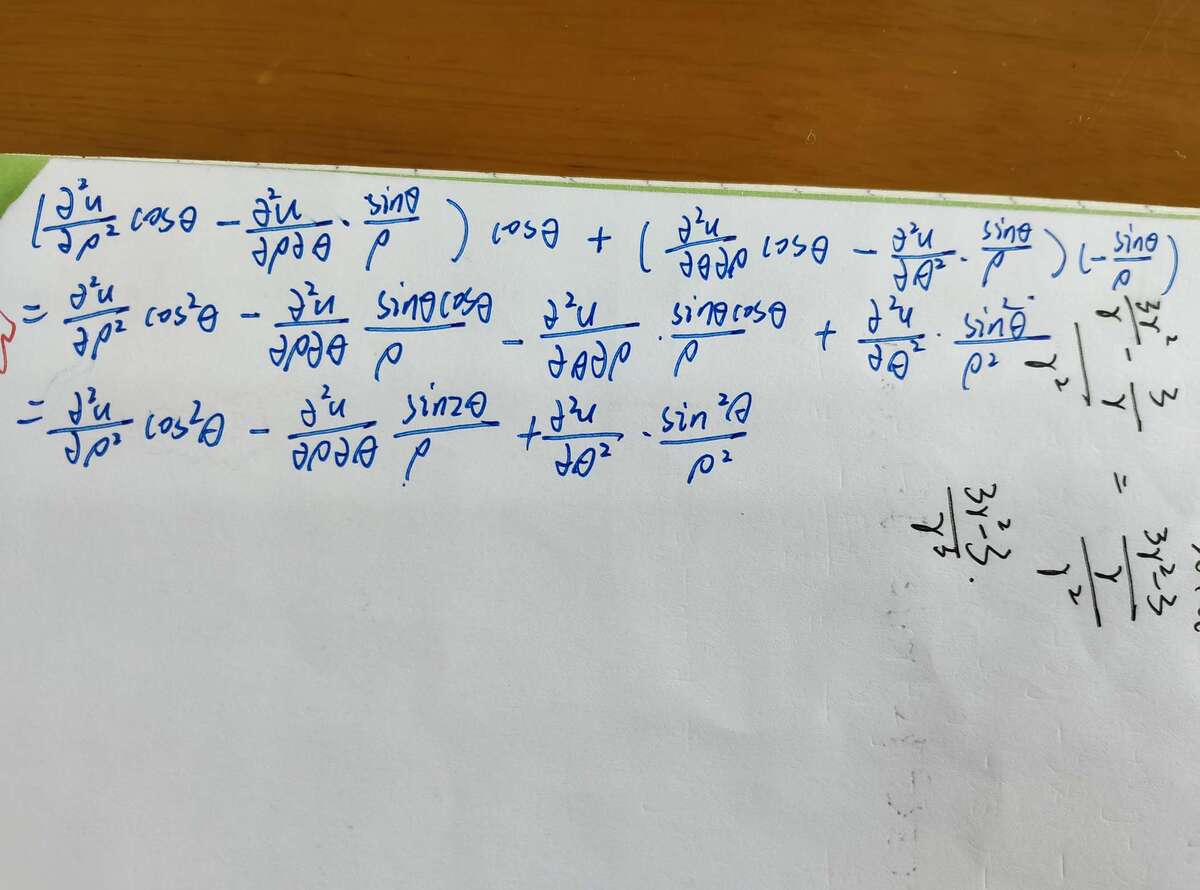 (∂²u/∂ρ² cosθ − ∂²u/∂ρ∂θ · sinθ/ρ) cosθ + (∂²u/∂θ∂ρ cosθ − ∂²u/∂θ² · sinθ/ρ)(−sinθ/ρ)
= ∂²u/∂ρ² cos²θ − ∂²u/∂ρ∂θ sinθcosθ/ρ − ∂²u/∂θ∂ρ · sinθcosθ/ρ + ∂²u/∂θ² · sin²θ/ρ²
= ∂²u/∂ρ² cos²θ − ∂²u/∂ρ∂θ sin2θ/ρ + ∂²u/∂θ² · sin²θ/ρ²
(3γ²/γ − 3/γ)/γ² = ((3γ²−3)/γ)/γ²
(3γ²−3)/γ³.